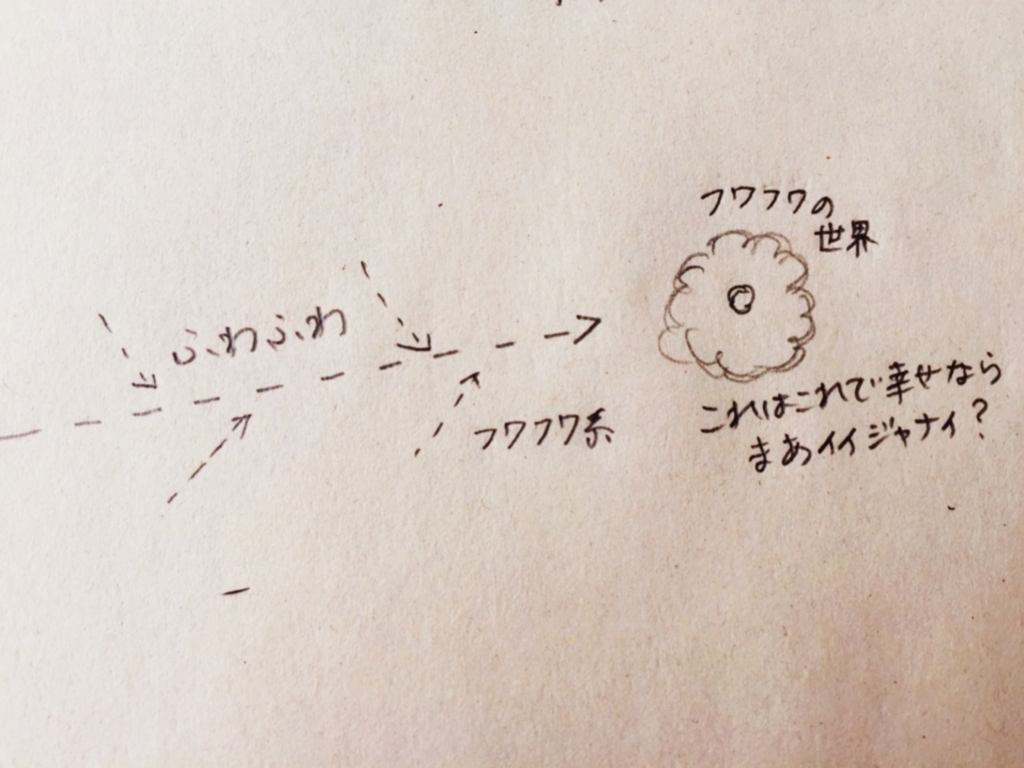 フワフワの
世界
ふわふわ
フワフワ系
これはこれで幸せなら
まあイイジャナイ?